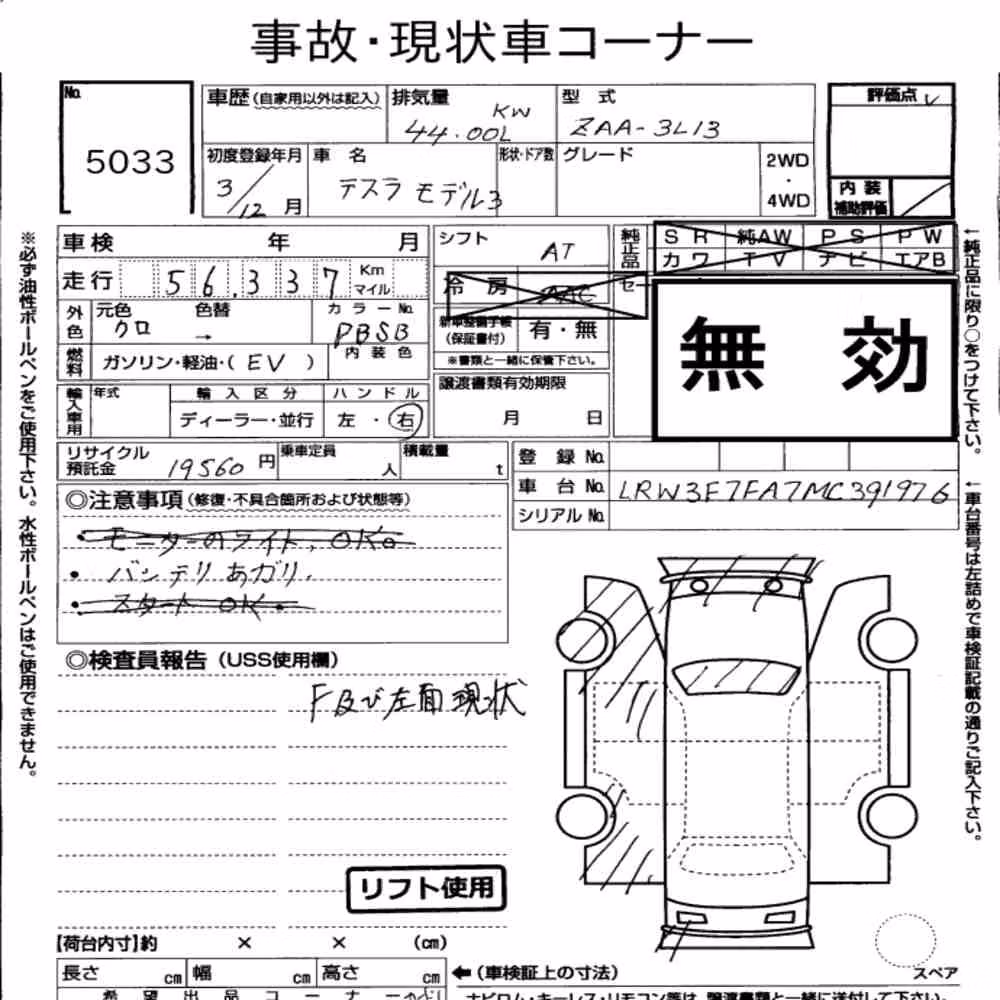 事故・現状車コーナー
No.
5033
車歴(自家用以外は記入)
排気量
KW
44.00L
型 式
ZAA-3L13
評価点
初度登録年月
3/12 月
車 名
テスラ モデル3
形状・ドア数
グレード
2WD
・
4WD
内 装
補助評価
車検 年 月
シフト
AT
純正品
S R 純AW P S P W
カワ T V ナビ エアB
走行 56,337 Km マイル
冷 房
AAC
セー
無 効
外色
元色 色替
クロ →
カラーNo.
PBSB
新車整備手帳
(保証書付)
有・無
※書類と一緒に保管下さい。
燃料
ガソリン・軽油・( EV )
内 装 色
譲渡書類有効期限
月 日
輸入車用
年式
輸 入 区 分
ディーラー・並行
ハ ン ド ル
左 ・ 右
リサイクル
預託金
19560 円
乗車定員
人
積載量
t
登 録 No.
車 台 No.
LRW3F7FA7MC391976
シリアル No.
◎注意事項(修復・不具合箇所および状態等)
・モニターのライト、OK。
・バッテリあがり.
・スタート OK.
◎検査員報告(USS使用欄)
F及び左面現状
リフト使用
【荷台内寸】約 × × (cm)
長さ cm 幅 cm 高さ cm
←(車検証上の寸法)
スペア
希 望 出 品 コ ー ナ ー
ナビロム・キーレス・リモコン等は、譲渡書類と一緒に送付して下さい。
※必ず油性ボールペンをご使用下さい。水性ボールペンはご使用できません。
←純正品に限り○をつけて下さい。
←車台番号は左詰めで車検証記載の通りご記入下さい。